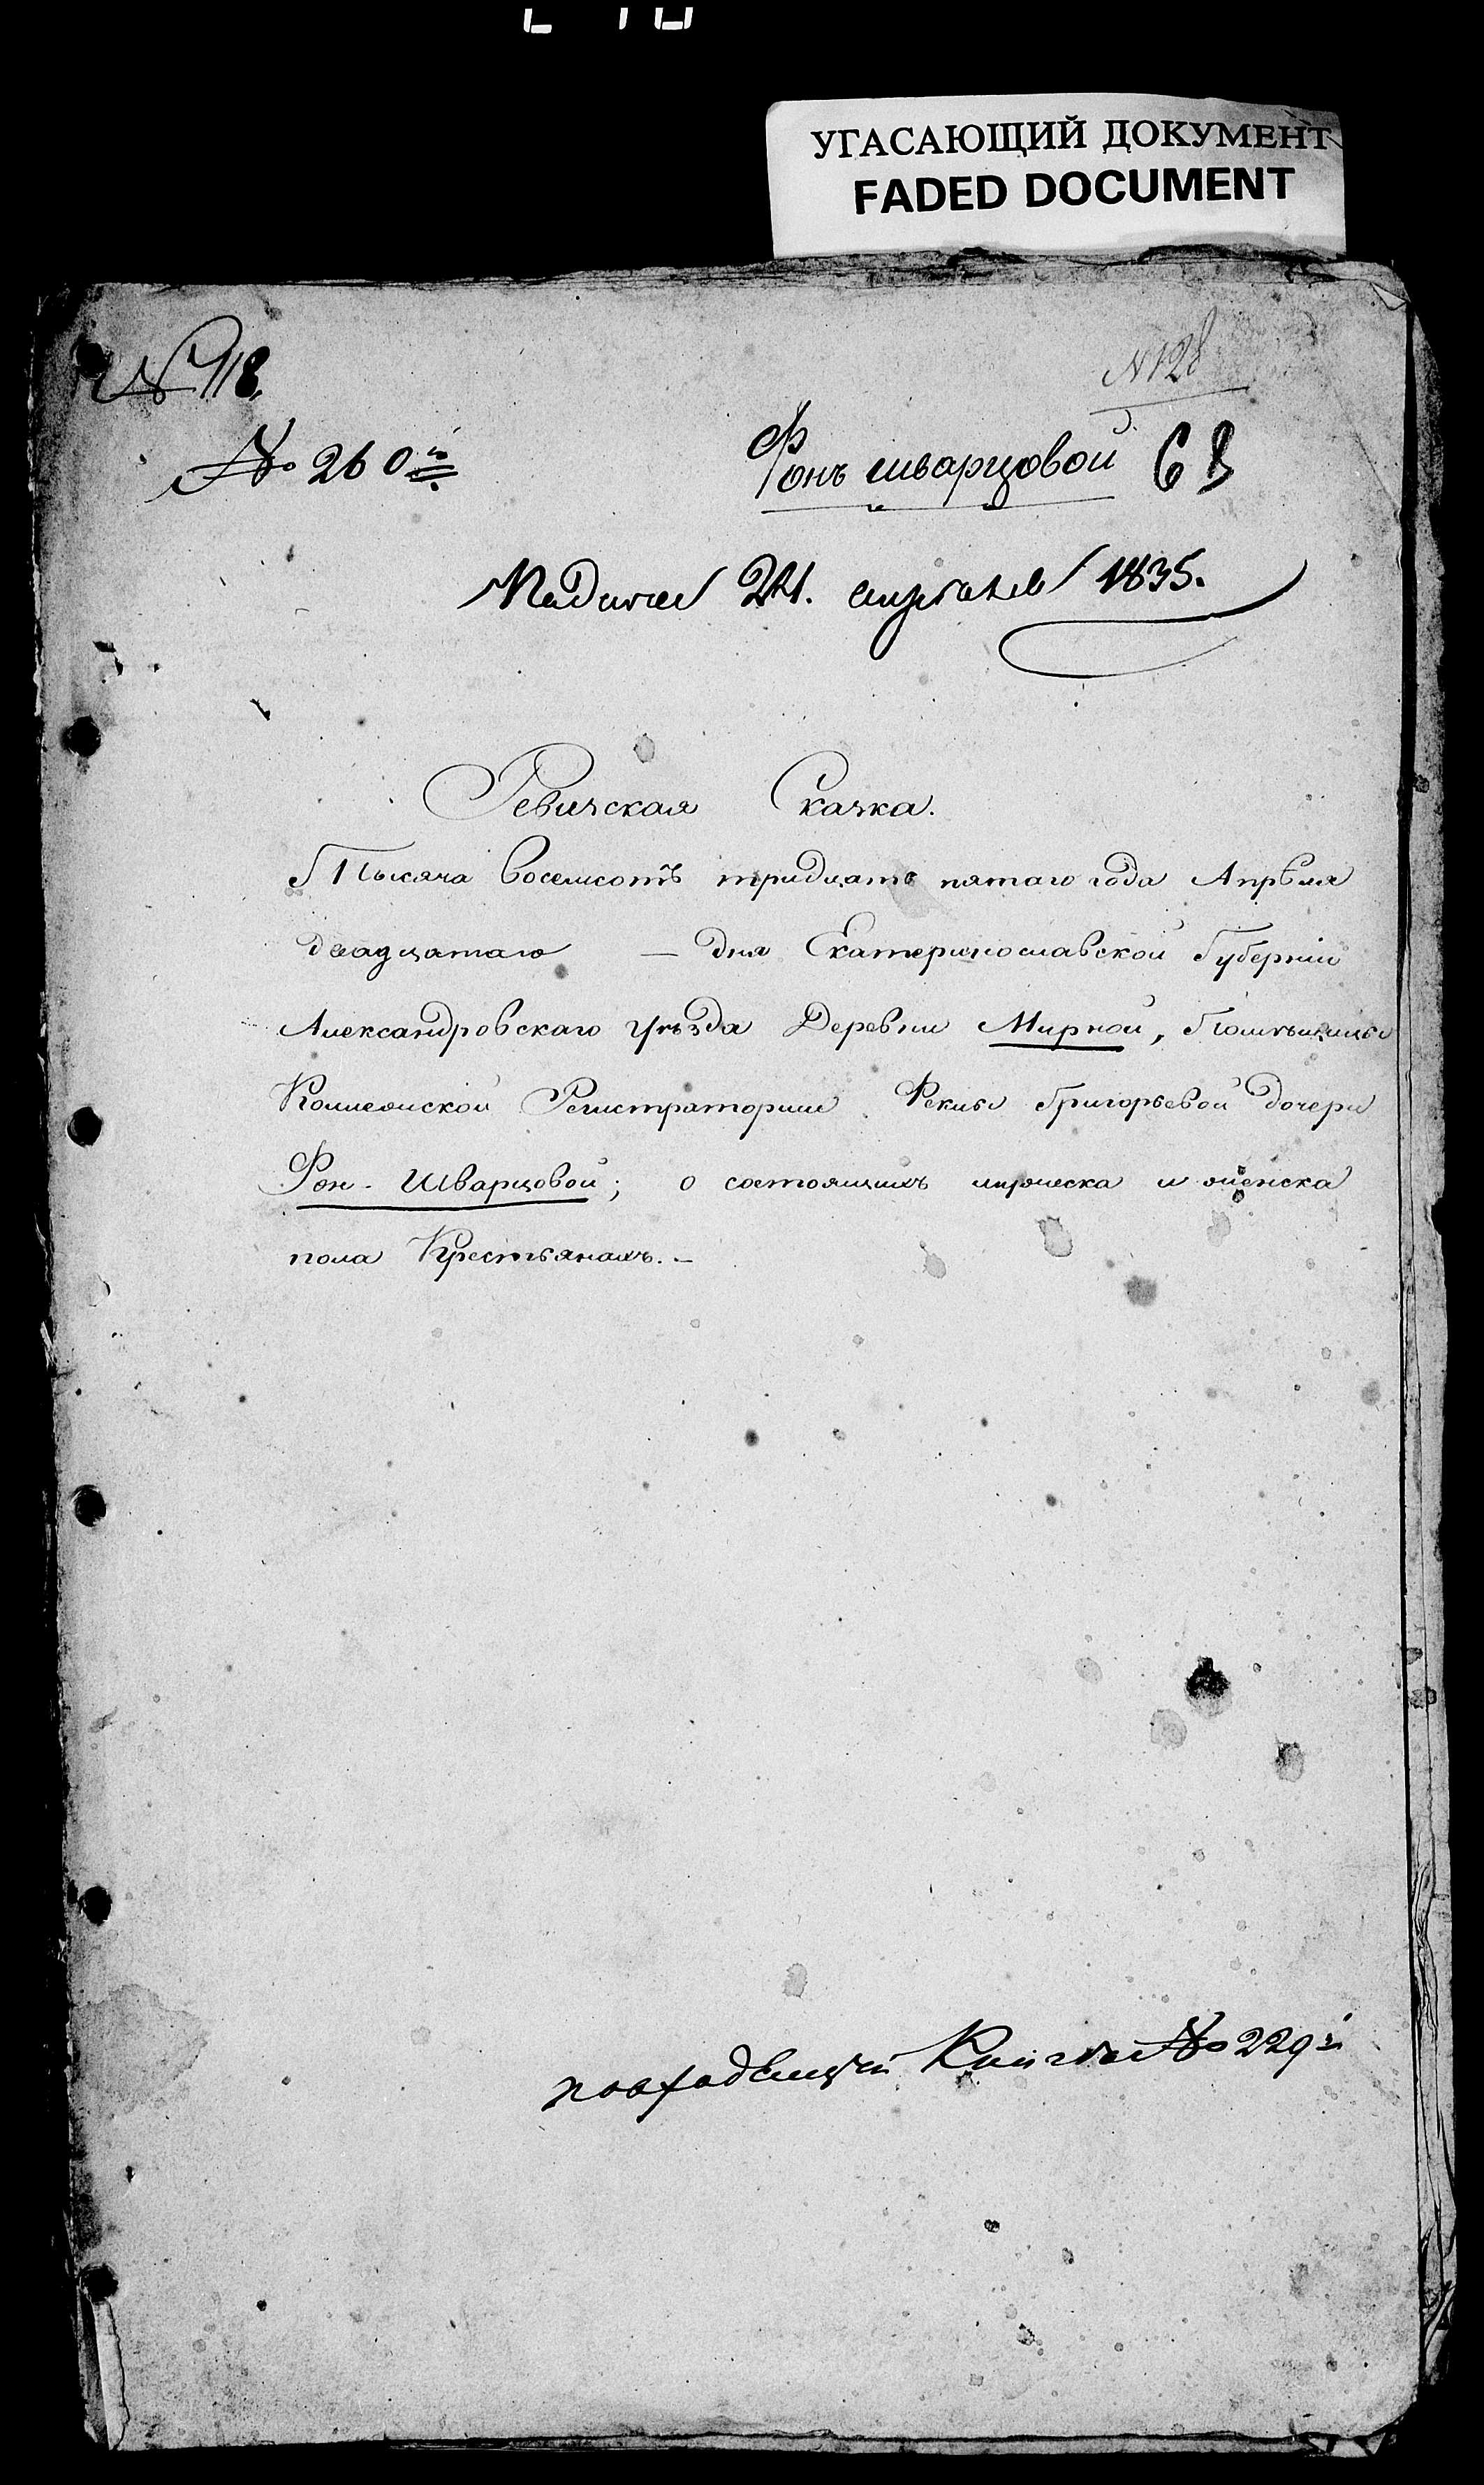 УГАСАЮЩИЙ ДОКУМЕНТ
FADED DOCUMENT
№ 118.
№ 128
№ 260й
Фонъ шварцовой 63
Подана 24. апреля 1835.
Ревизская Сказка.
Тысяча восемсотъ тридцать пятаго года Апреля
двадцатаго — дня Екатеринославской Губернiи
Александровскаго уѣзда Деревни Мирной, Помѣщицы
Коллежской Регистраторши Феклы Григорьевой дочери
Фон-Шварцовой; о состоящихъ мужеска и женска
пола Крестьянахъ. —
по входящей Книги № 229й